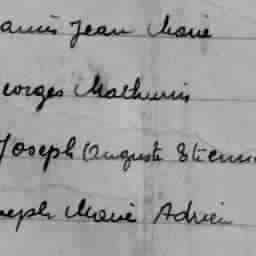 Jean Marie
eorges Mathurin
Joseph Auguste Etienne
seph Marie Adrien